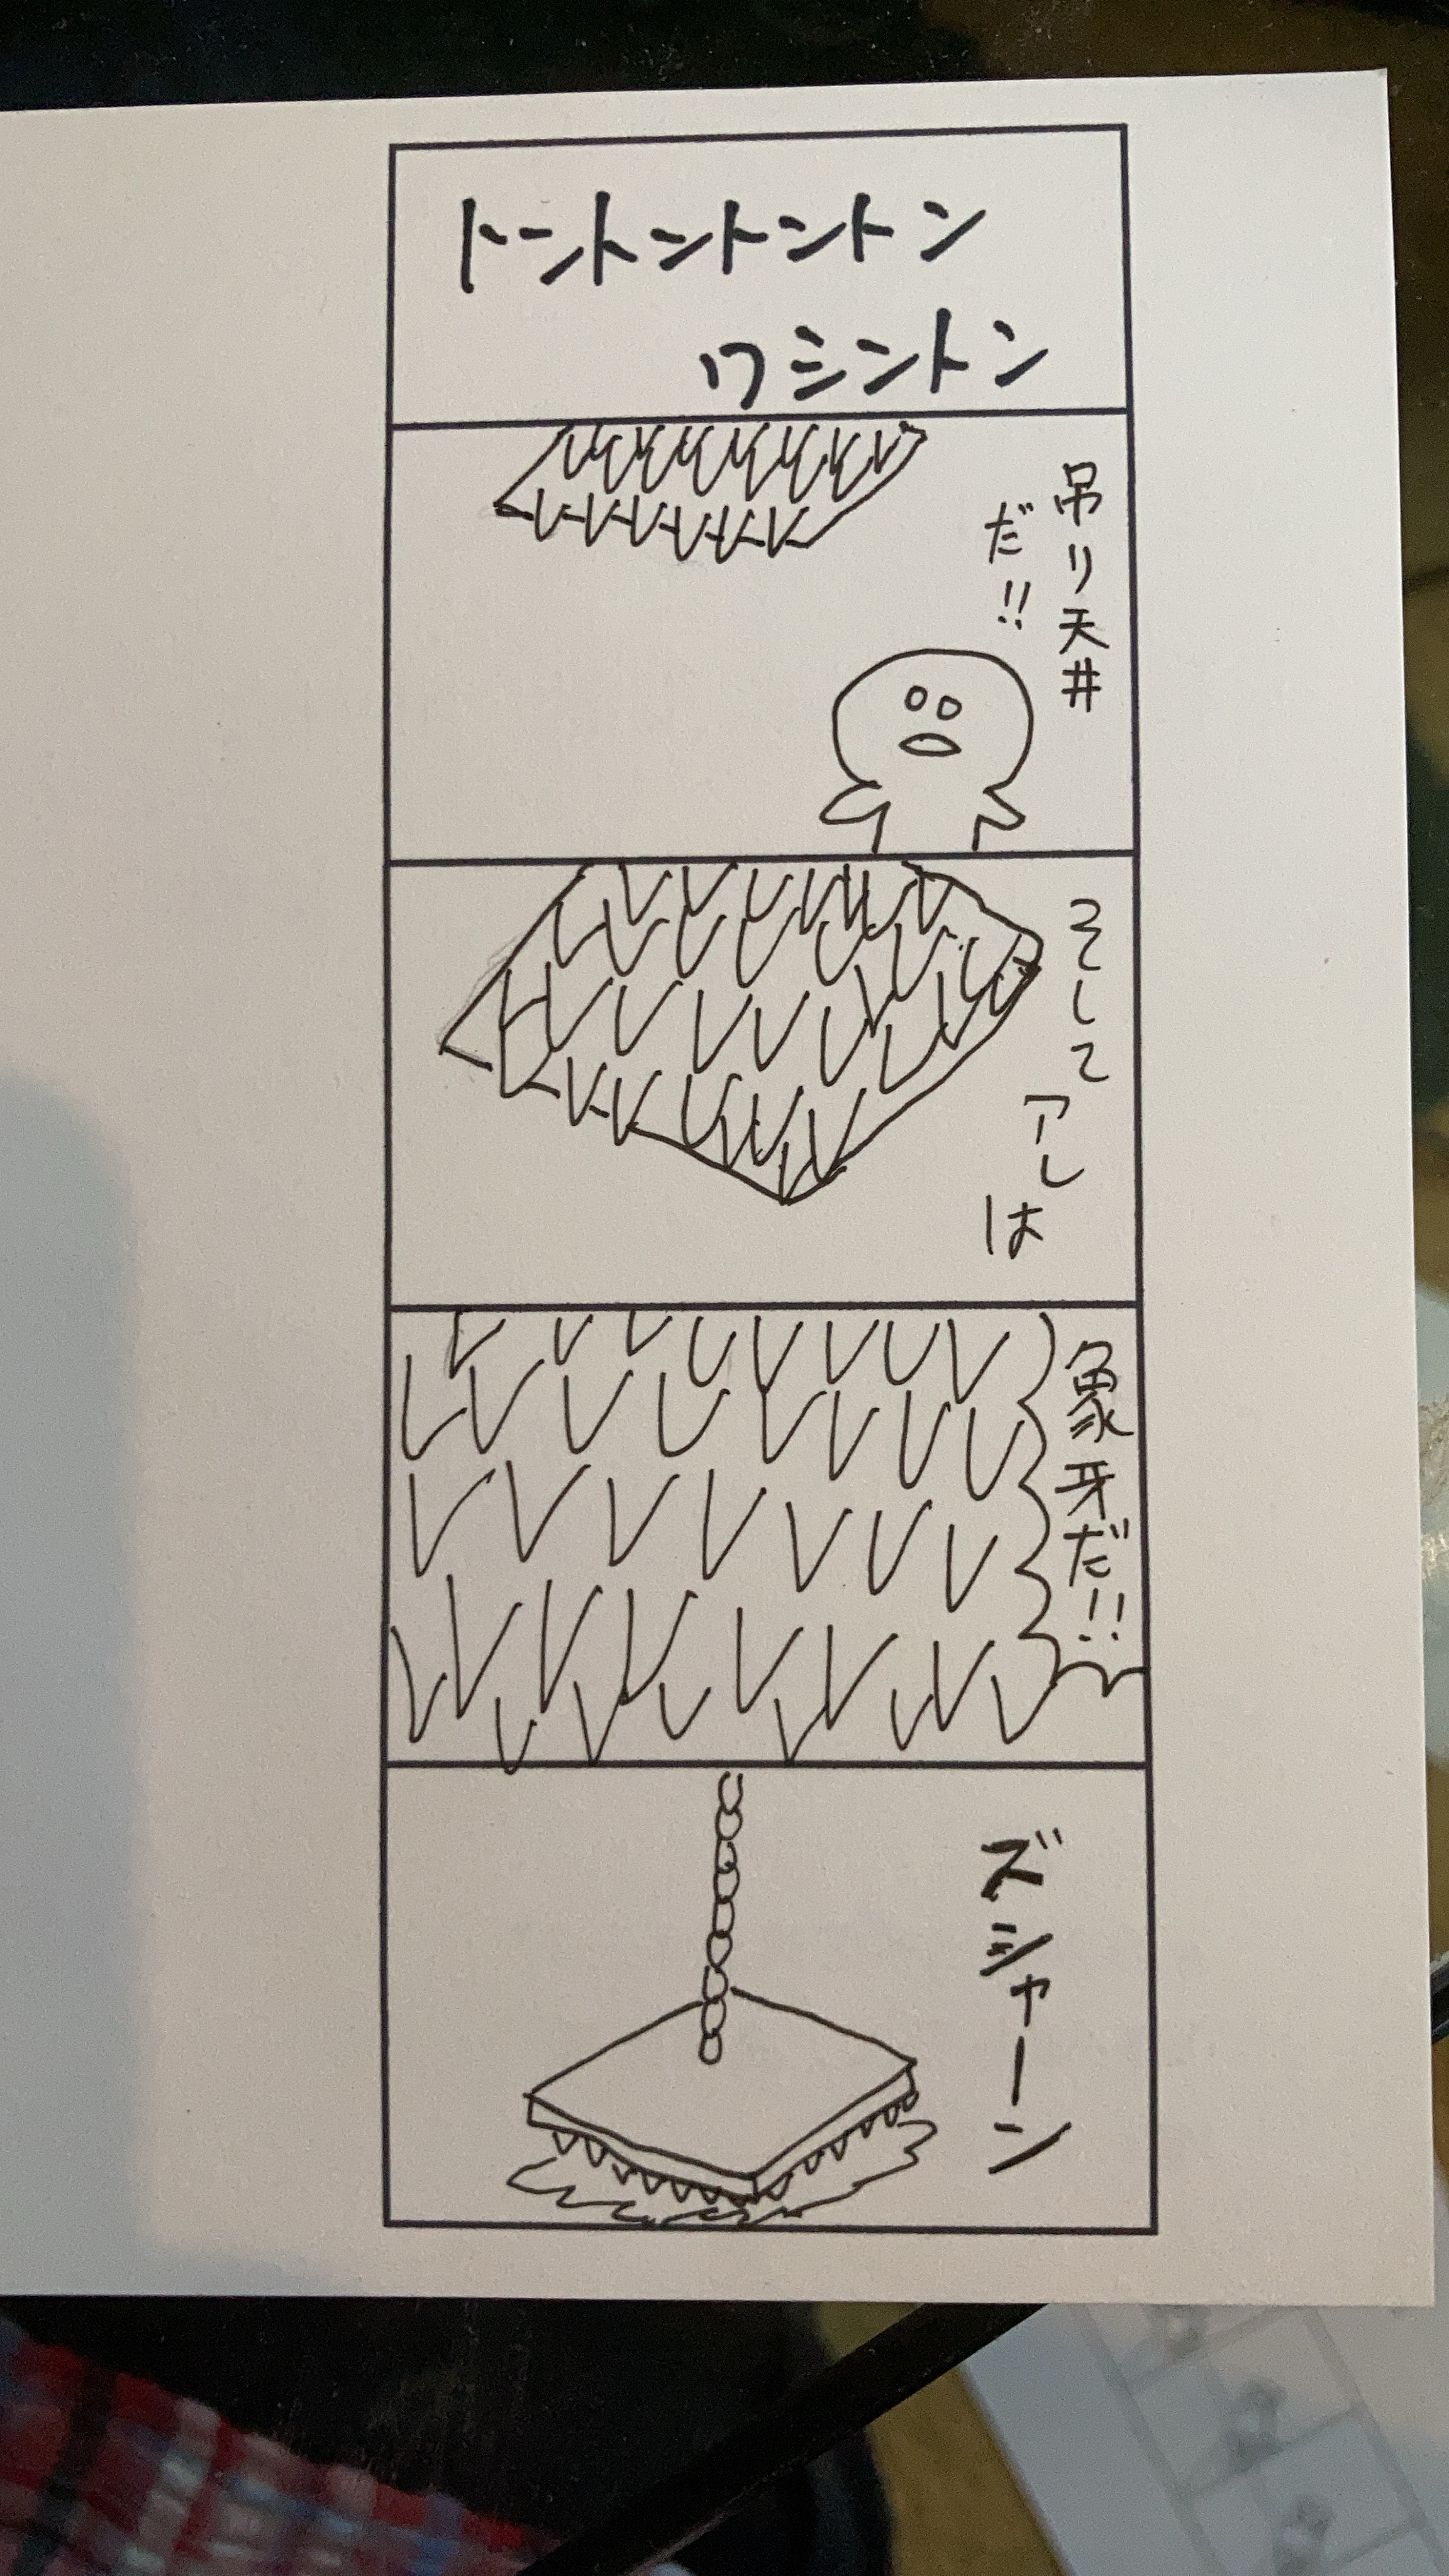 トントントントン
ワシントン
吊り天井
だ!!
そして
アレ
は
象牙だ!!
ズシャーン